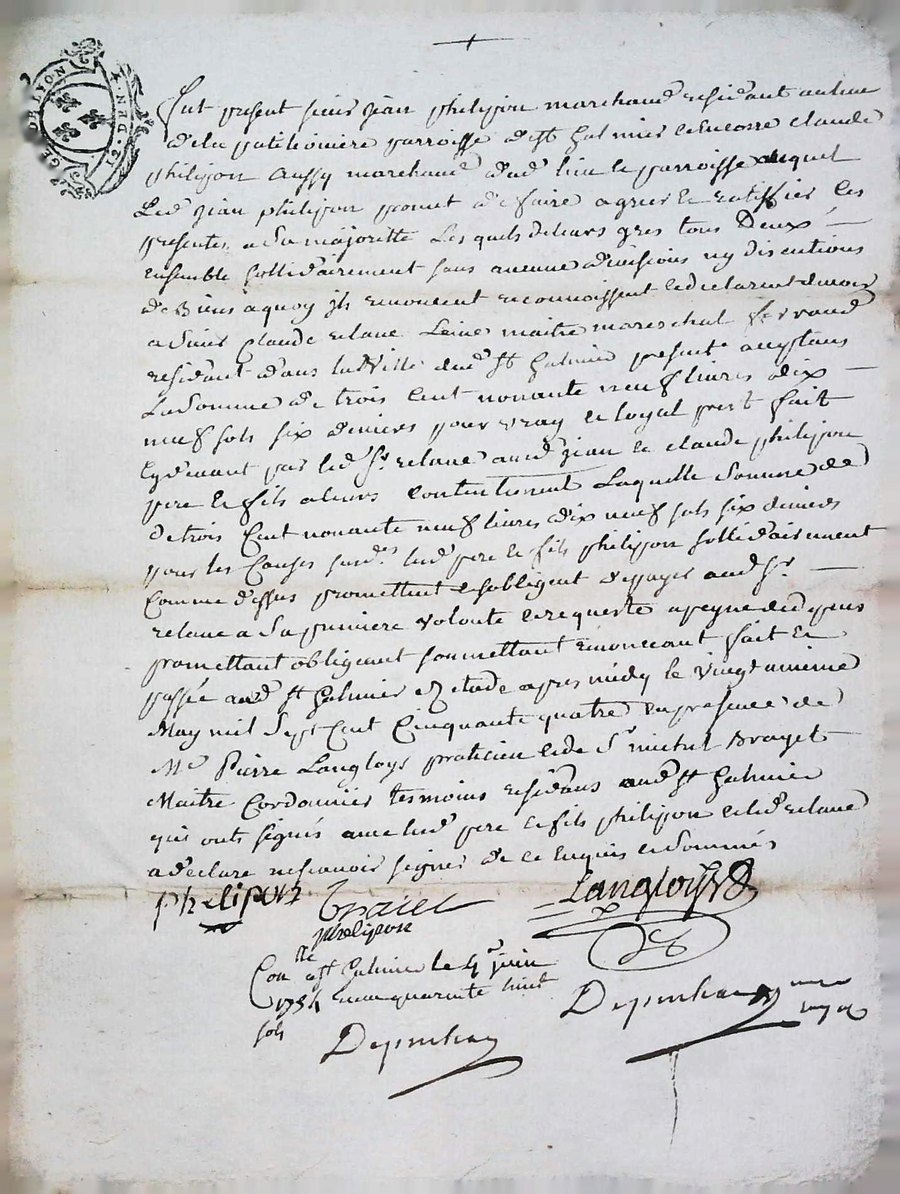 GE DE LYON
4. NRD EN. 12
fut present sieur jean philippon marchand residant au lieu
de la parroisse de St Galmier et encorre claude
philippon aussy marchand dud lieu et parroisse duquel
Led jean philippon promet de faire agreer et ratiffier les
presentes a sa majoritté Lesquels de leurs gres tous Deux
ensemble sollidairement sans aucune divisions ny discutions
de Biens a quoy ils renoncent reconnoissent et declarent devoir
a Sieur Claude maitre mareschal
residant dans la Ville dud St Galmier present acceptans
La Somme de trois Cent nonante neuf livres dix
neuf sols six deniers pour vray et loyal prest fait
cydevant par led Sr auxd jean et claude philippon
pere et fils a leurs contentement Laquelle Somme de
de trois Cent nonante neuf livres dix neuf sols six deniers
pour les Causes susds lesd pere et fils philippon sollidairement
Comme dessus promettent et sobligent de payer aud Sr
a Sa premiere volonté et requeste a peyne de
promettant obligeant soumettant renoncant fait et
passée aud St Galmier etude apres midy le vingt
May mil Sept Cent Cinquante quatre en presence de
Me Pierre Langloys praticien et de Sr michel Brayet
Maitre Cordonnier tesmoins residans aud St Galmier
qui onts signés avec lesd pere et fils philippon et led
a declare ne scavoir signer de ce enquis et sommés
phelipon Braiet Langloys
phelipon
Conlle a St Galmier le 4e juin
1754 quarante huit
sols